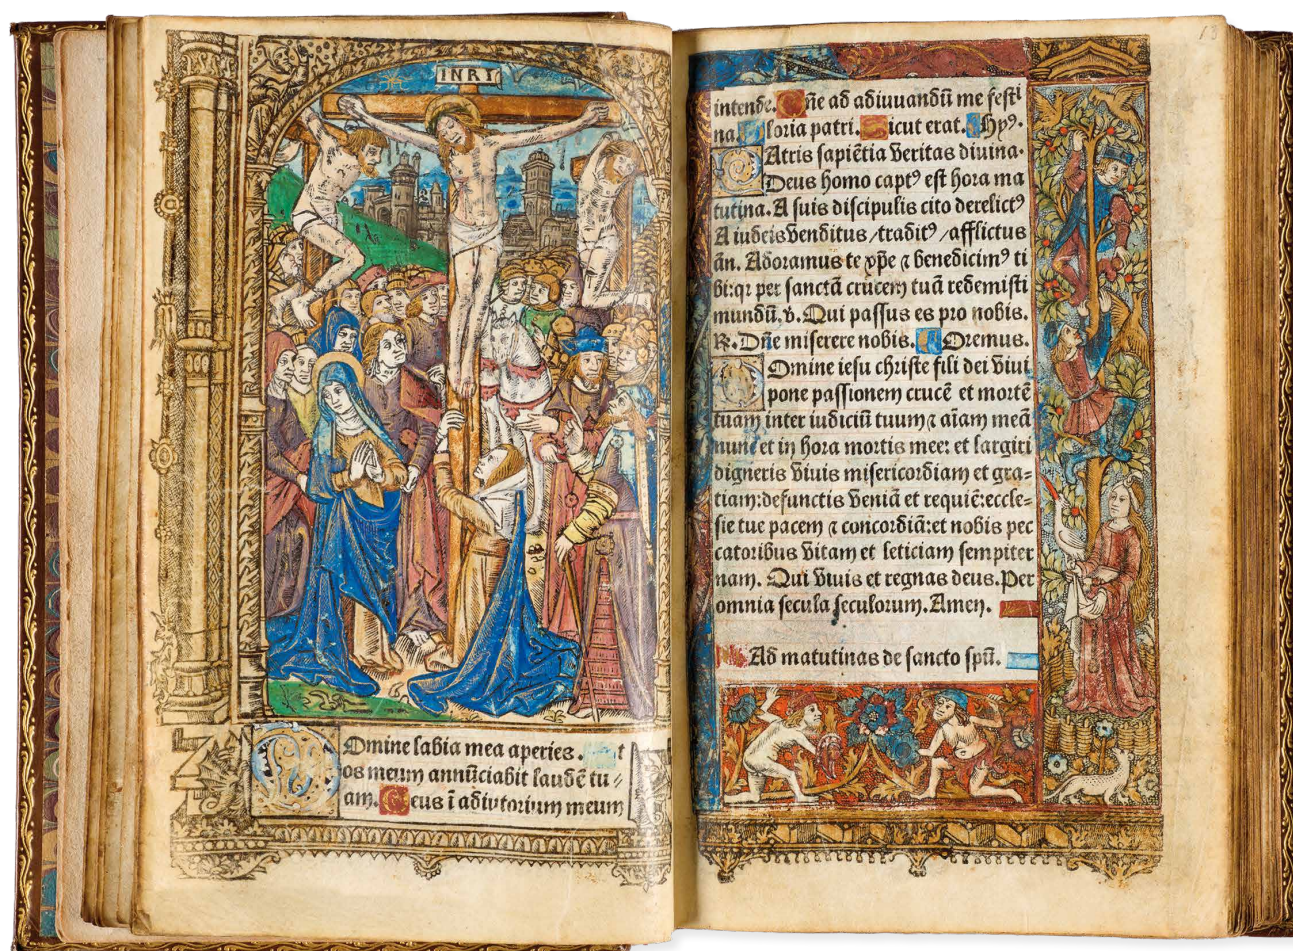 INRI
Omine labia mea aperies. Et
os meum annūciabit laudē tu⸗
am. Deus ī adiutorium meum
13
intende. Dñe ad adiuuandū me festi
na. Gloria patri. Sicut erat. Hypꝰ.
PAtris sapiētia veritas diuina.
Deus homo captꝰ est hora ma
tutina. A suis discipulis cito derelictꝰ
A iudeis venditus/traditꝰ/afflictus
ān. Adoramus te xp̄e ⁊ benedicimꝰ ti
bi:qr per sanctā crucem tuā redemisti
mundū. v̄. Qui passus es pro nobis.
R. Dñe miserere nobis. Oremus.
DOmine iesu christe fili dei viui
pone passionem crucē et mortē
tuam inter iudiciū tuum ⁊ aīam meā
nunc et in hora mortis mee: et largiri
digneris viuis misericordiam et gra⸗
tiam:defunctis veniā et requiē:eccle⸗
sie tue pacem ⁊ concordiā:et nobis pec
catoribus vitam et leticiam sempiter
nam. Qui viuis et regnas deus. Per
omnia secula seculorum. Amen.
Ad matutinas de sancto spū.